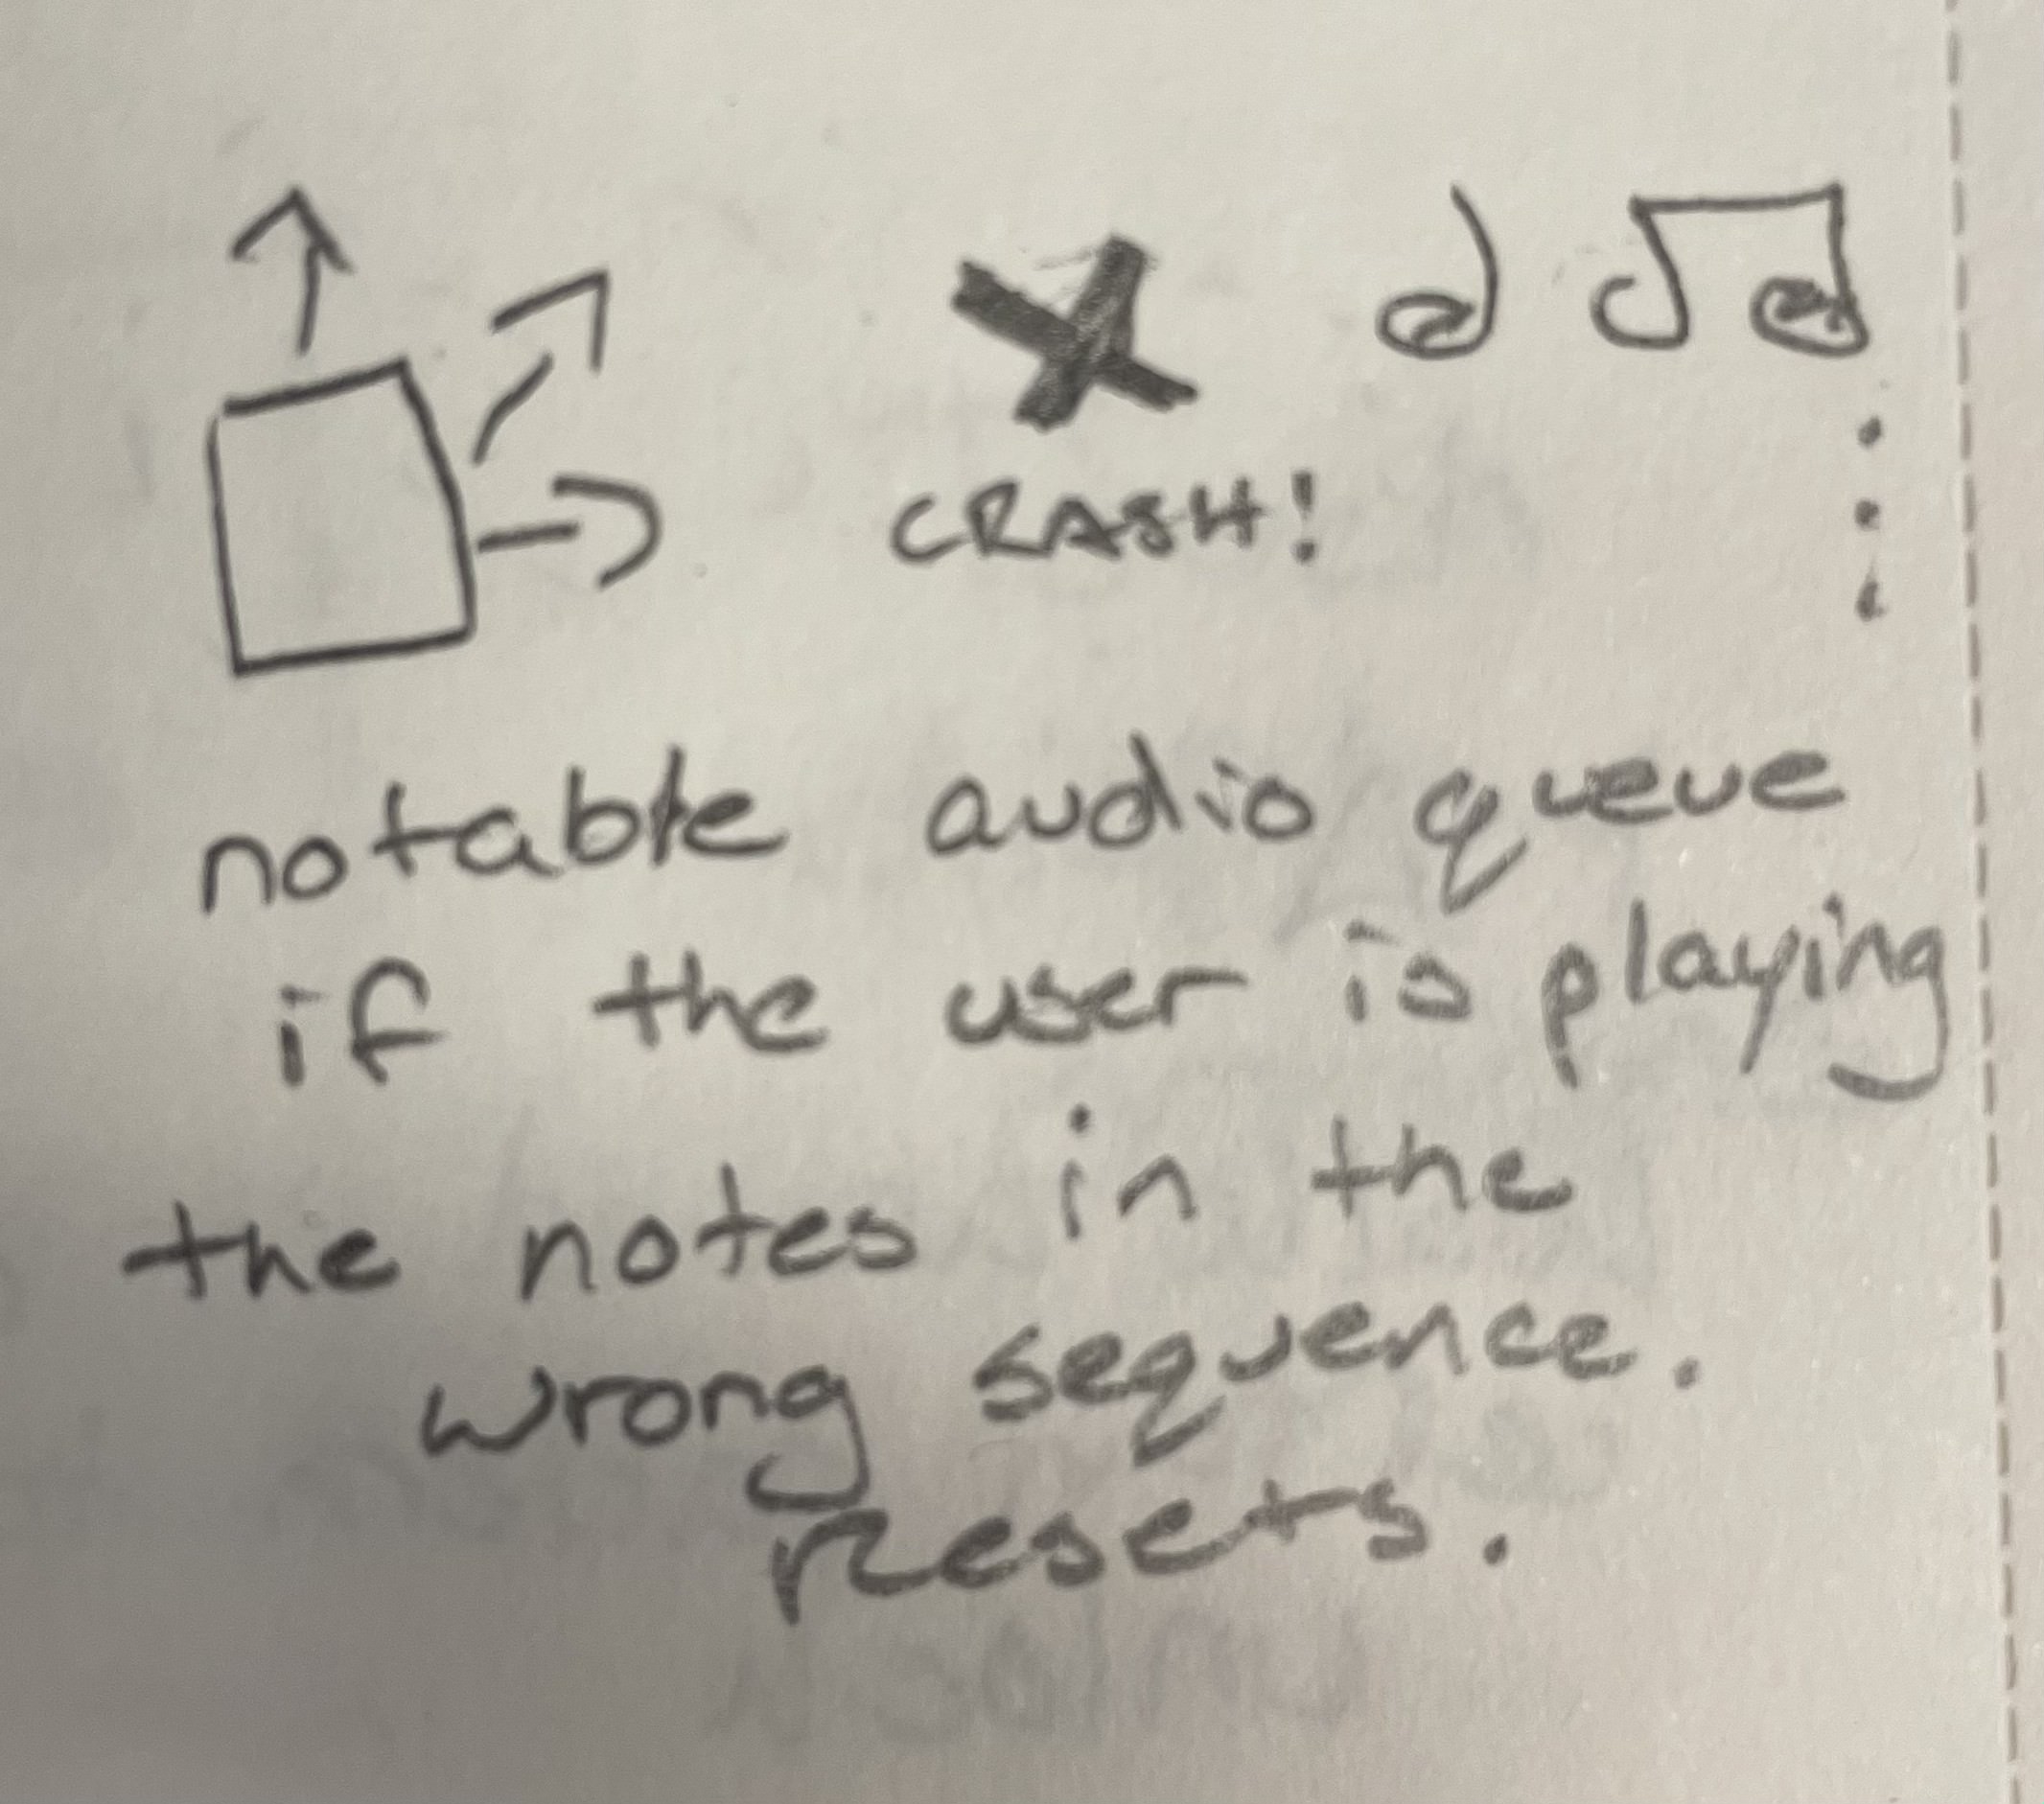 CRASH!
notable audio queue
if the user is playing
the notes in the
wrong sequence.
Resets.